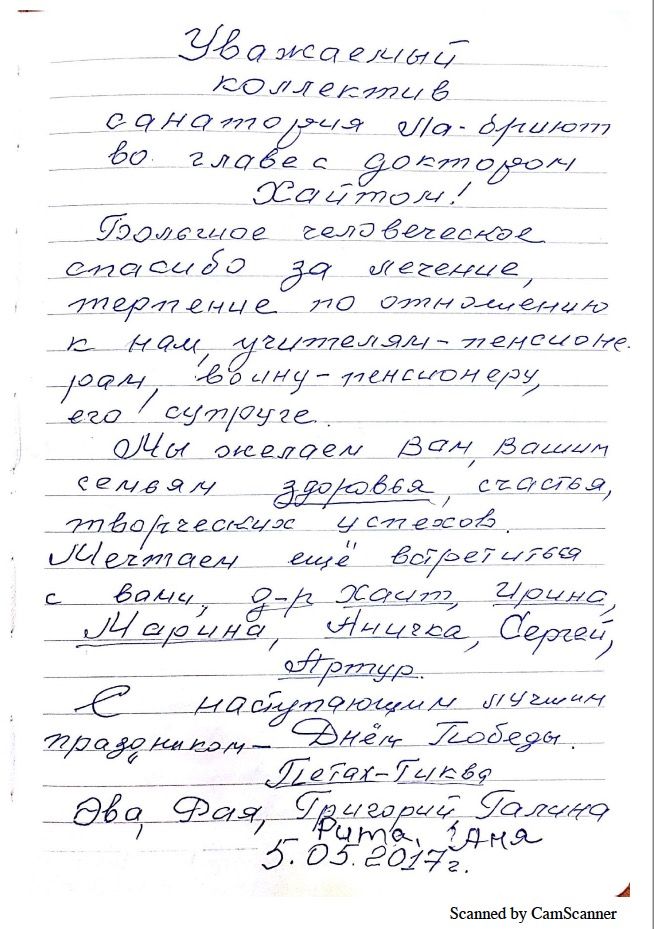 Уважаемый
коллектив
санатория Ла-бриют
во главе с доктором
Хайтом!
Большое человеческое
спасибо за лечение,
терпение по отношению
к нам, учителям-пенсионе
рам, воину-пенсионеру,
его супруге.
Мы желаем Вам, Вашим
семьям здоровья, счастья,
творческих успехов.
Мечтаем ещё встретиться
с вами, д-р Хаит, Ирина,
Марина, Аничка, Сергей,
Артур.
С наступающим лучшим
праздником- Днём Победы.
Петах-Тиква
Эва, Фая, Григорий, Галина
Рита, Аня
5.05.2017г.
Scanned by CamScanner